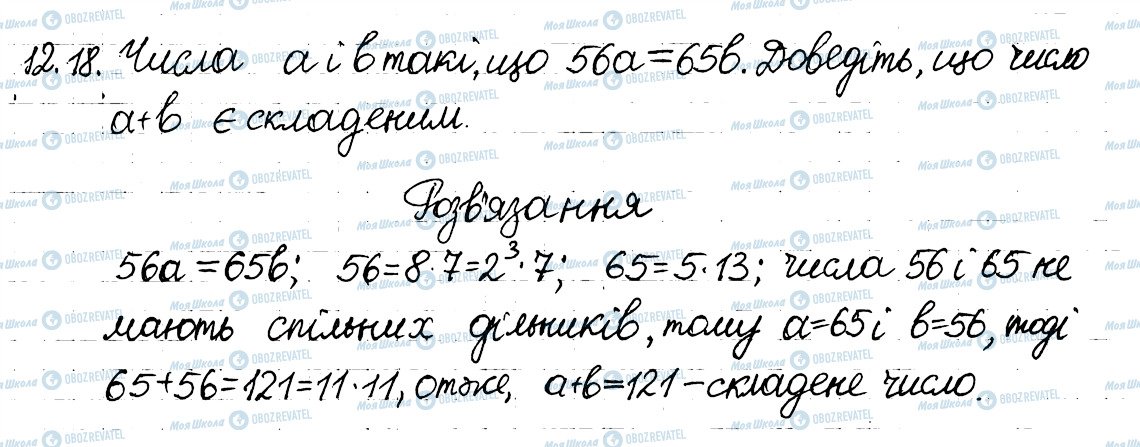 12.18. Числа а і в такі, що 56а=65в. Доведіть, що число
а+в є складеним.
Розв'язання
56а=65в; 56=8·7=2³·7; 65=5·13; числа 56 і 65 не
мають спільних дільників, тому а=65 і в=56, тоді
65+56=121=11·11, отже, а+в=121 – складене число.